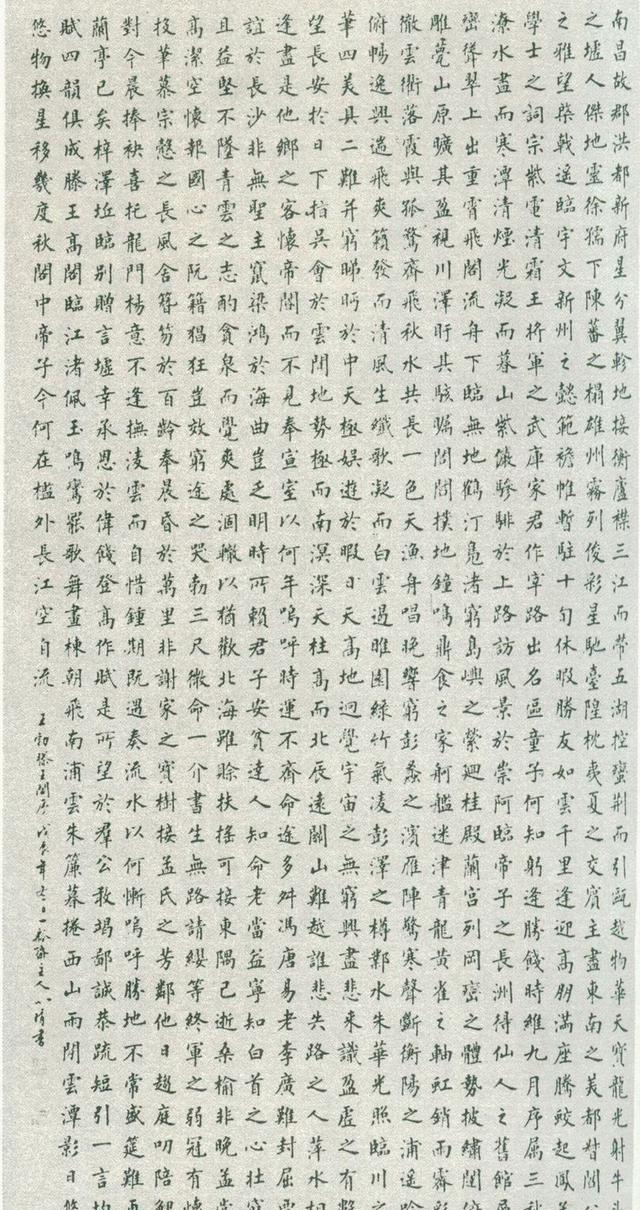 南昌故郡洪都新府星分翼軫地接衡廬襟三江而帶五湖控蠻荊而引甌越物華天寶龍光射牛斗
之墟人傑地靈徐孺下陳蕃之榻雄州霧列俊彩星馳臺隍枕夷夏之交賓主盡東南之美都督閻公
之雅望棨戟遙臨宇文新州之懿範襜帷暫駐十旬休暇勝友如雲千里逢迎高朋滿座騰蛟起鳳孟
學士之詞宗紫電清霜王將軍之武庫家君作宰路出名區童子何知躬逢勝餞時維九月序屬三秋
潦水盡而寒潭清煙光凝而暮山紫儼驂騑於上路訪風景於崇阿臨帝子之長洲得仙人之舊館層
巒聳翠上出重霄飛閣流丹下臨無地鶴汀鳧渚窮島嶼之縈迴桂殿蘭宮列岡巒之體勢披繡闥俯
雕甍山原曠其盈視川澤盱其駭矚閭閻撲地鐘鳴鼎食之家舸艦迷津青龍黃雀之軸虹銷雨霽彩
徹雲衢落霞與孤鶩齊飛秋水共長一色天漁舟唱晚響窮彭蠡之濱雁陣驚寒聲斷衡陽之浦遙吟
俯暢逸興遄飛爽籟發而清風生纖歌凝而白雲遏睢園綠竹氣凌彭澤之樽鄴水朱華光照臨川之
筆四美具二難并窮睇眄於中天極娛遊於暇日天高地迥覺宇宙之無窮興盡悲來識盈虛之有數
望長安於日下指吳會於雲間地勢極而南溟深天柱高而北辰遠關山難越誰悲失路之人萍水相
逢盡是他鄉之客懷帝閽而不見奉宣室以何年嗚呼時運不齊命途多舛馮唐易老李廣難封屈賈
誼於長沙非無聖主竄梁鴻於海曲豈乏明時所賴君子安貧達人知命老當益寧知白首之心壯窮
且益堅不墜青雲之志酌貪泉而覺爽處涸轍以猶歡北海雖賒扶搖可接東隅已逝桑榆非晚孟嘗
高潔空懷報國心之阮籍猖狂豈效窮途之哭勃三尺微命一介書生無路請纓等終軍之弱冠有懷
投筆慕宗愨之長風舍簪笏於百齡奉晨昏於萬里非謝家之寶樹接孟氏之芳鄰他日趨庭叨陪鯉
對今晨捧袂喜托龍門楊意不逢撫凌雲而自惜鍾期既遇奏流水以何慚嗚呼勝地不常盛筵難再
蘭亭已矣梓澤坵臨別贈言墟幸承恩於偉餞登高作賦是所望於羣公敢竭鄙誠恭疏短引一言均
賦四韻俱成滕王高閣臨江渚佩玉鳴鸞罷歌舞畫棟朝飛南浦雲朱簾暮捲西山雨閒雲潭影日悠
悠物換星移幾度秋閣中帝子今何在檻外長江空自流
王勃滕王閣序 主人 書